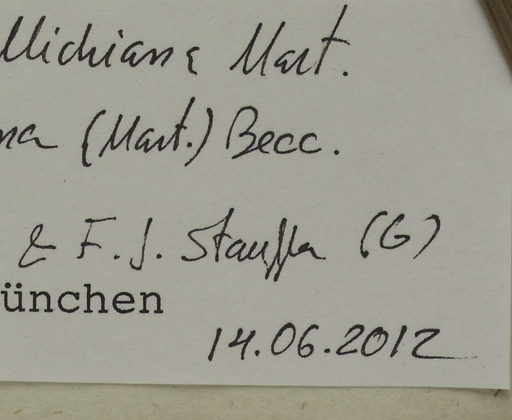 Michiana Mart.
na (Mart.) Becc.
& F. J. Stauffer (G)
ünchen
14.06.2012